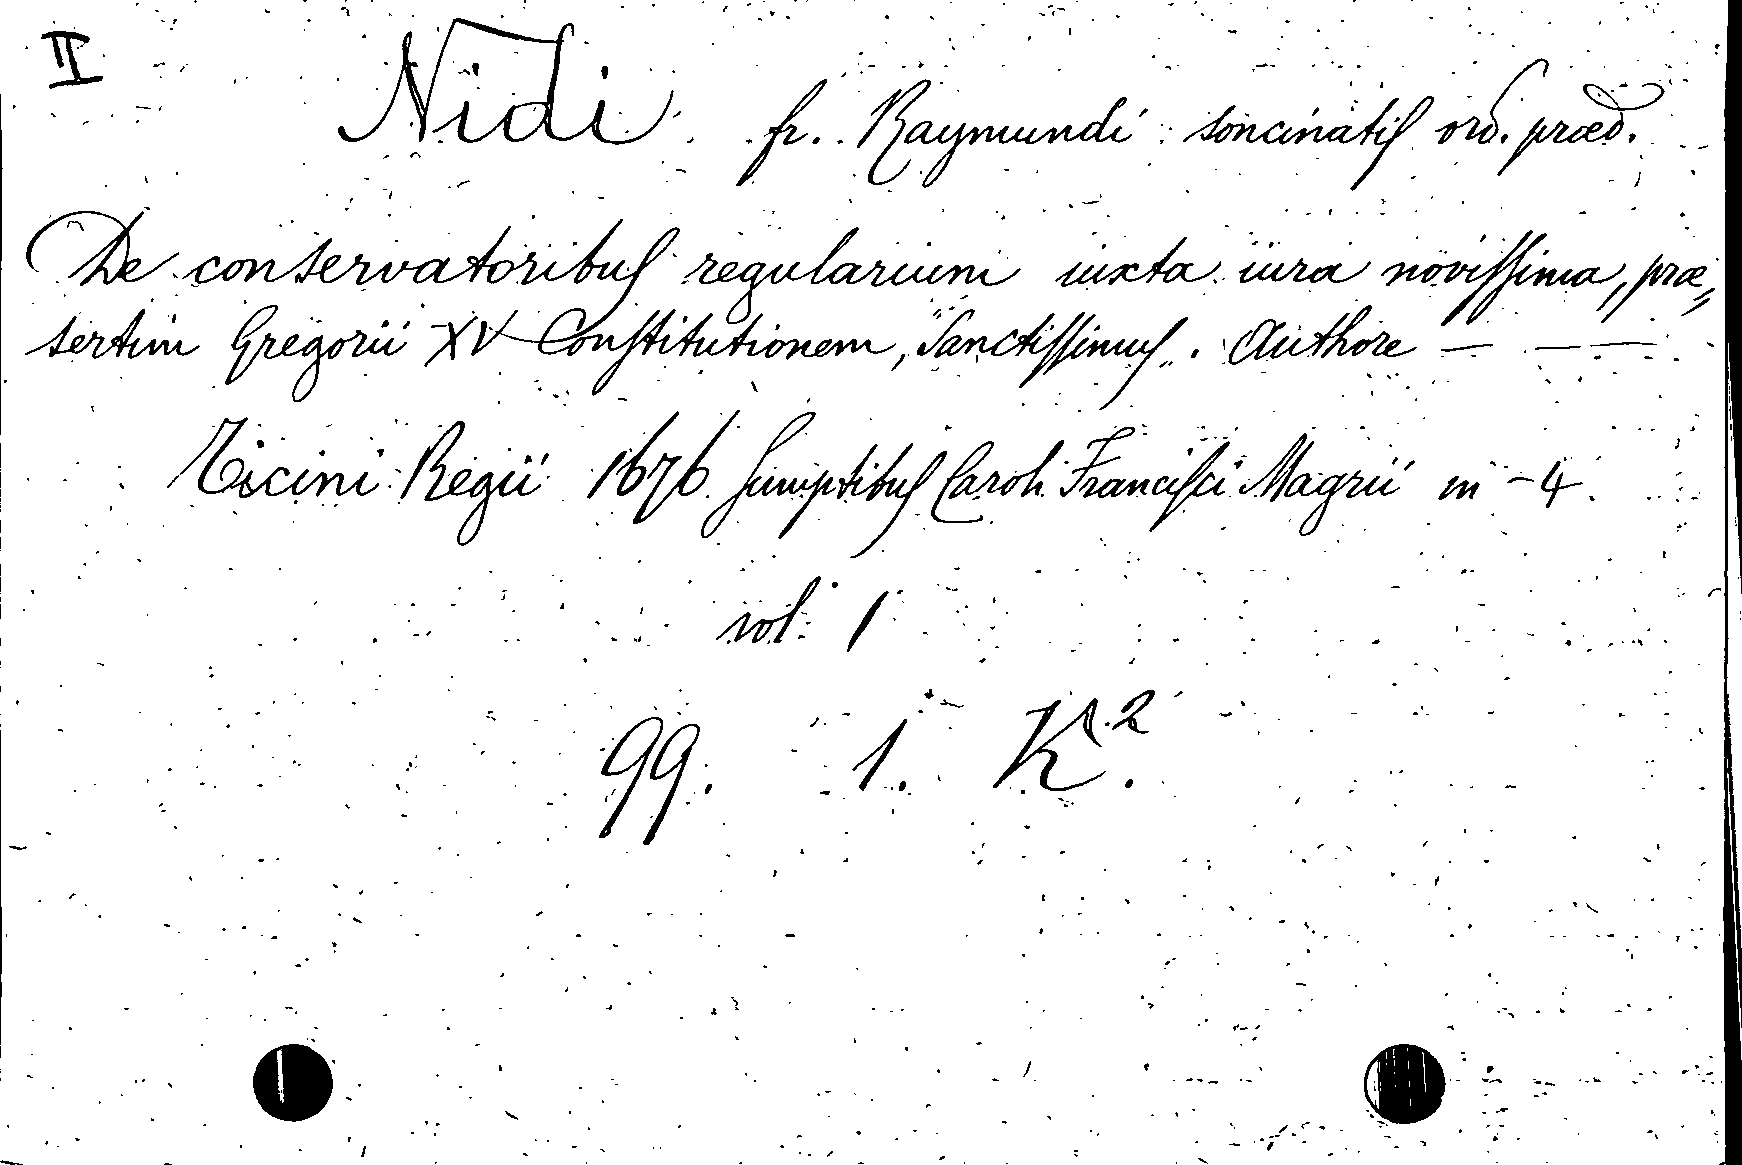 II
Nidi fr. Raymundi soncinatiſ ord. præd.
De conservatoribuſ regularium iuxta iura noviſſima, præ„
sertim Gregorii XV Conſtitutionem, "Sanctiſſimuſ„. Authore — ——
Ticini Regii 1676 ſumptibuſ Caroli Franciſci Magrii in - 4.
vol: 1
99. 1. K².